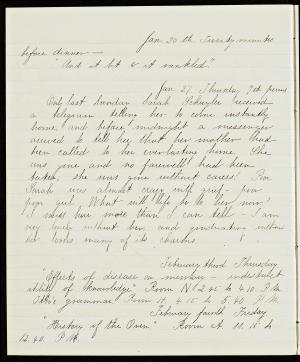 Jan 20th Twenty minutes
before dinner —
"And it bit & it rankled".
Jan 27. Thursday
Only last Sunday Sarah Schuyler received
a telegram telling her to come instantly
home, and before midnight a messenger
arrived to tell her that her mother had
been called to her last home. She
was gone and no farewell had been
she was gone without
Sarah was almost crazy with grief - poor
poor girl, What will life be to her now!
I miss her more than I can tell - I am
very lonely without her, and
her looks many of its charms
February third Thursday
"Effects of disease on memory -
of knowledge" Room N 2.45 to 4.10 P.M.
Otto's grammar Room H. 4.15 to 5.40 P.M.
February fourth Friday
"History of the " Room A. 11.15 to
12.40. P.M.